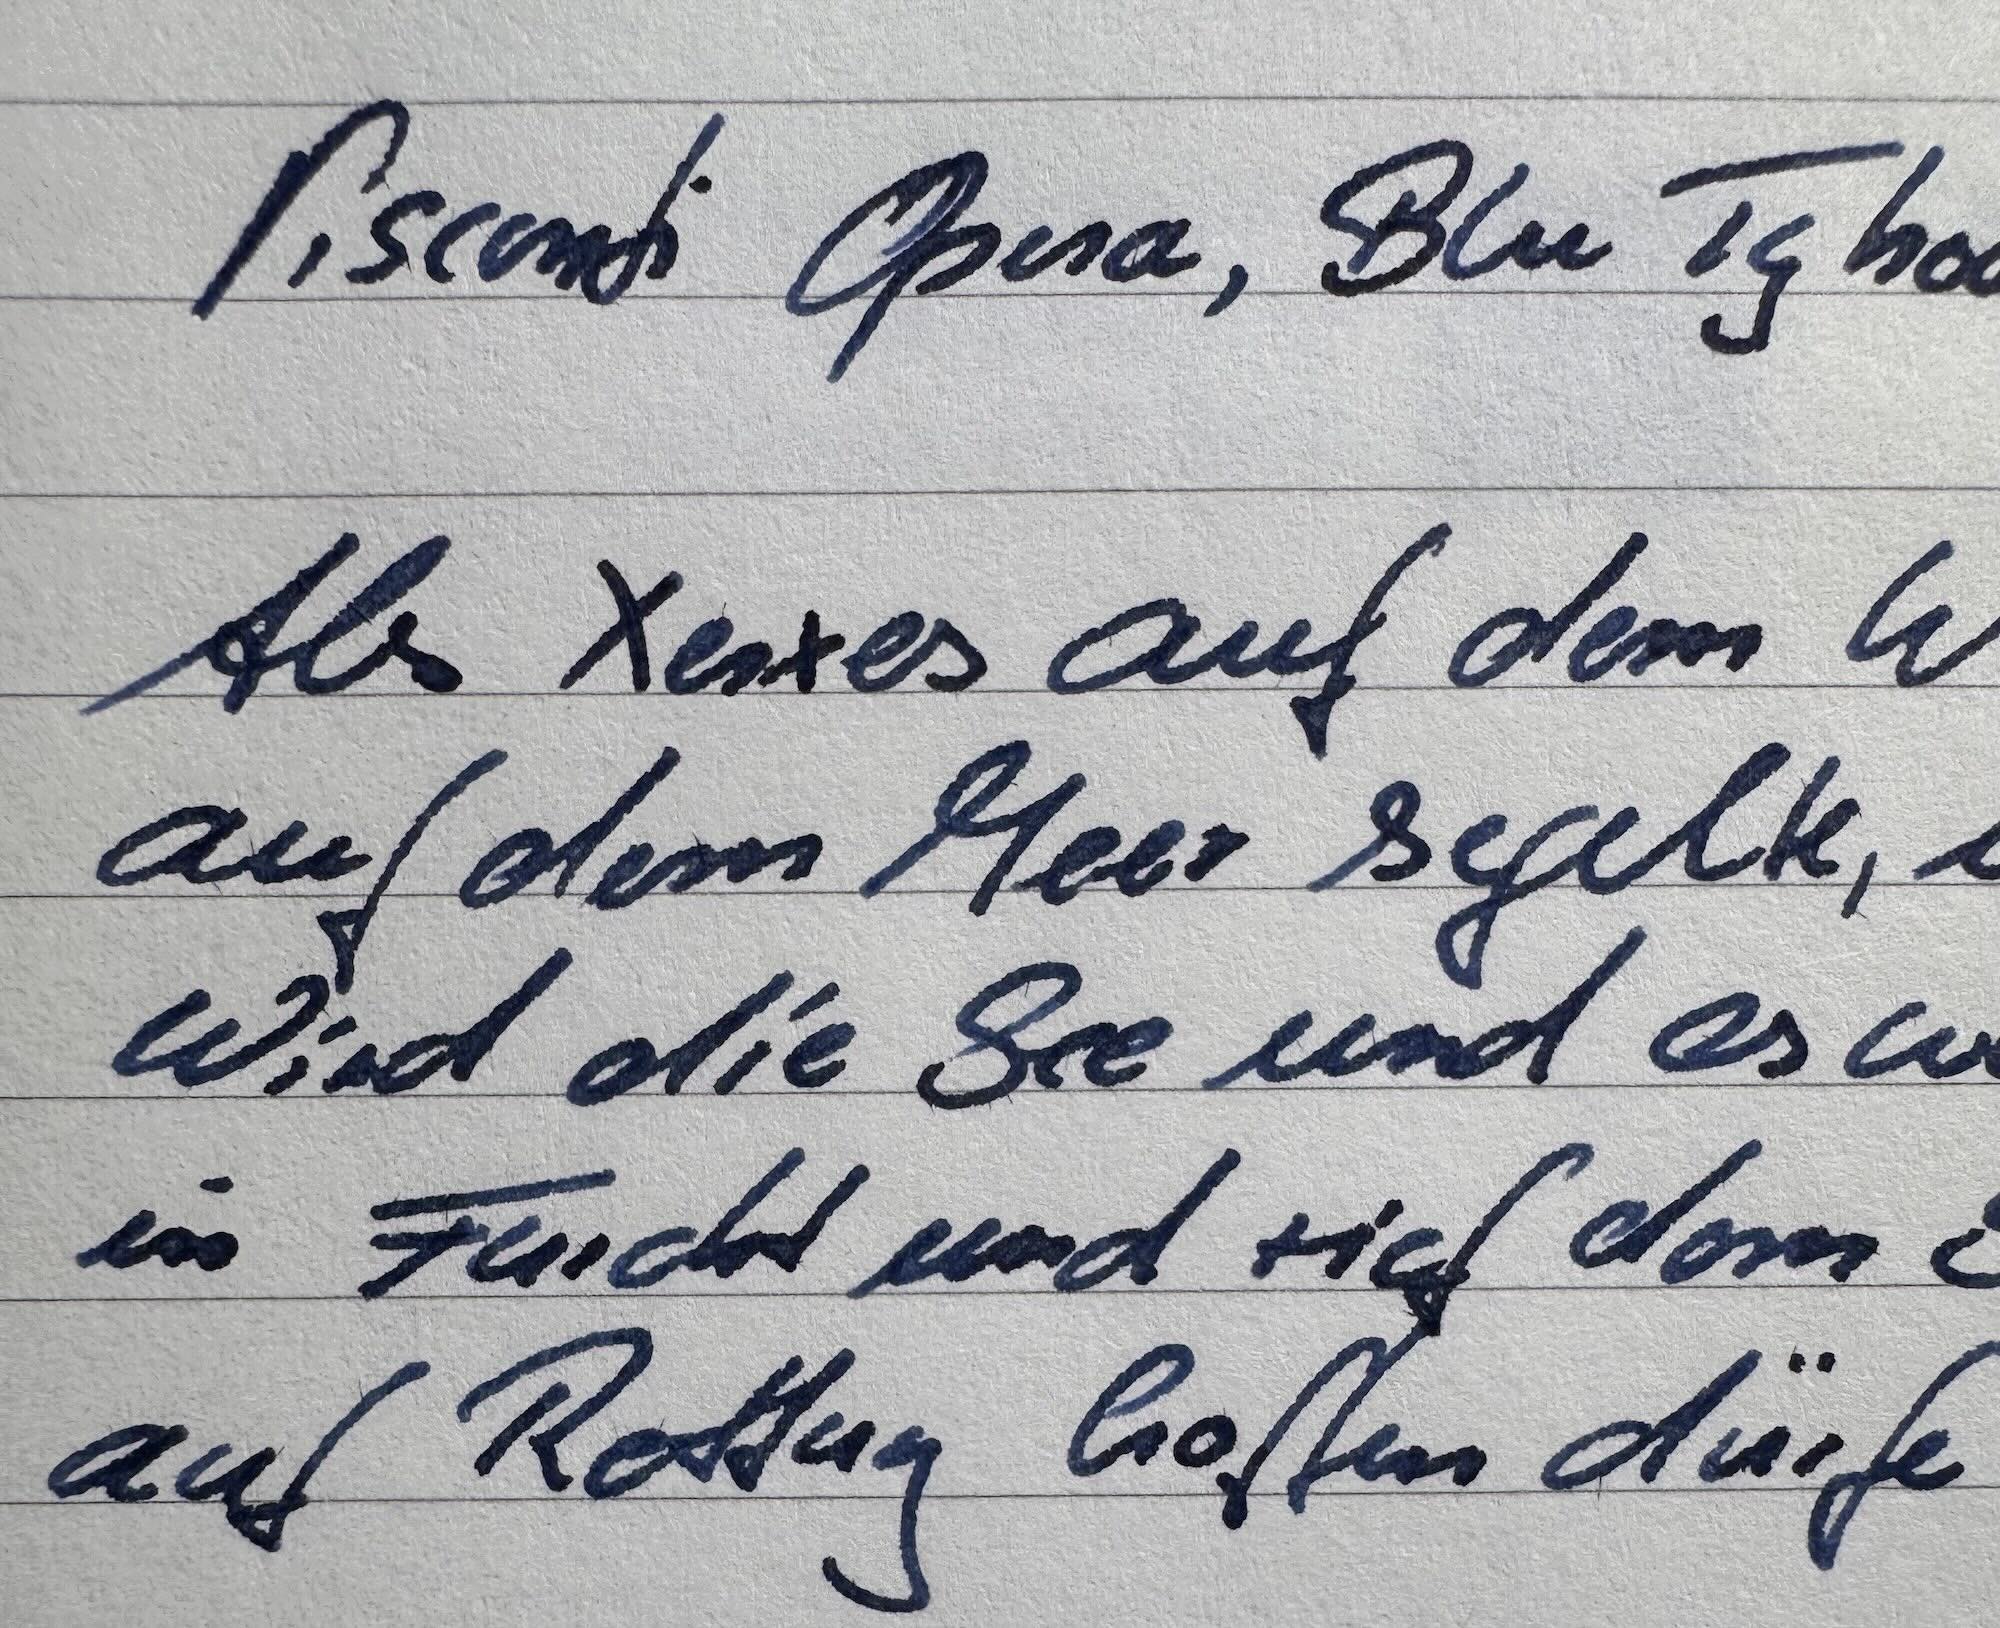 Visconti Opera, Blu
Als Xerxes auf dem
auf dem Meer segelte,
Wind die See und es
in Furcht und rief dem
auf Rettung hoffen dürfe